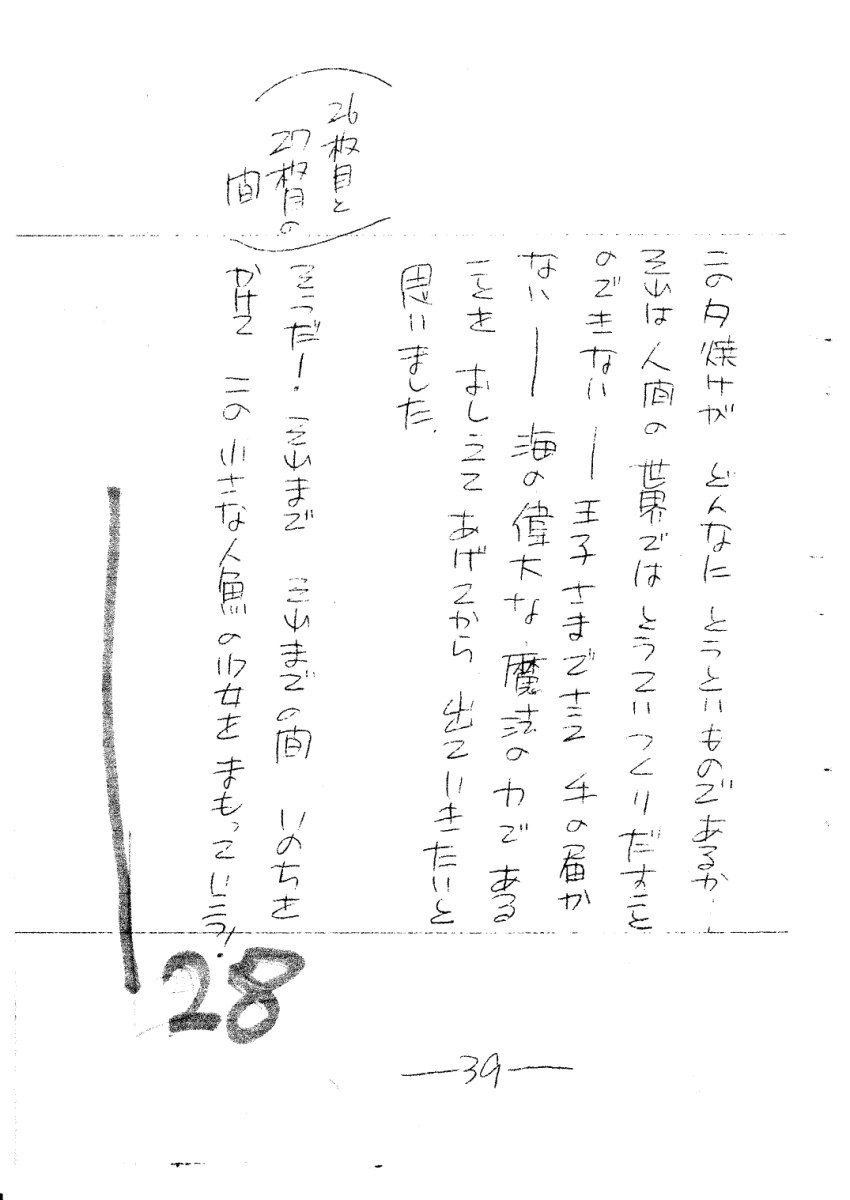 26枚目と
27枚目の
間
この夕焼けが どんなに とうといものであるか.
それは人間の世界では とうていつくりだすこと
のできない ― 王子さまでさえ 手の届か
ない ― 海の偉大な魔法の力で ある
ことを おしえて あげてから 出ていきたいと
思いました.
そうだ! それまで それまでの間 いのちを
かけて この小さな人魚の少女を まもっていこう!
28
―39―